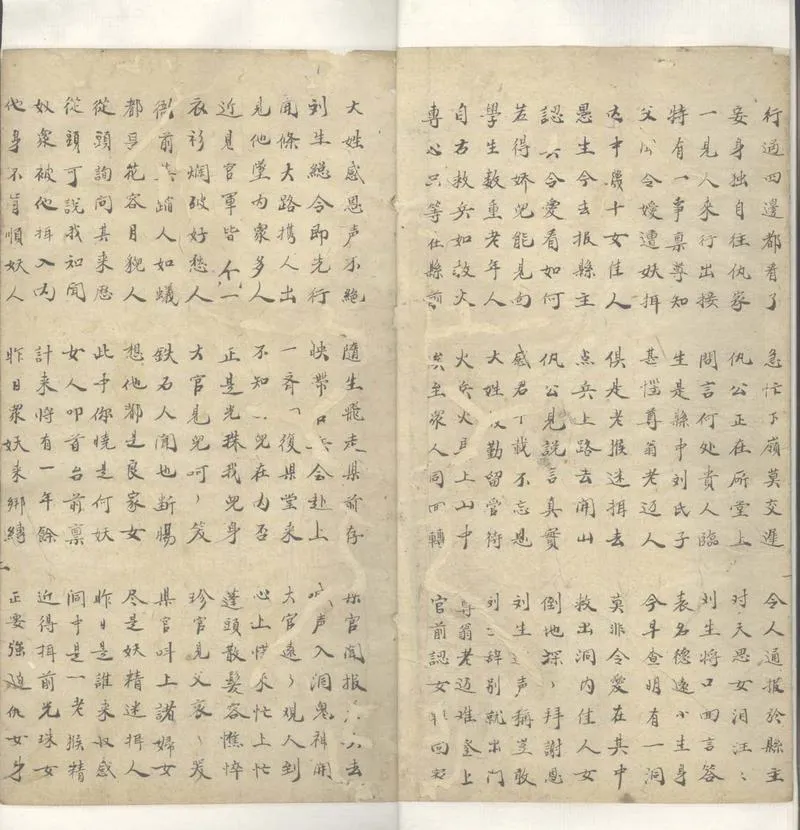 行過四邊都看了 急忙下嶺莫交遲 令人通报於縣主
妾身独自往仇家 仇公正在所堂上 对天思女泪汪ミ
一見人来行出接 問言何处貴人臨 刘生将口回言答
特有一事稟尊知 生是縣中刘氏子 表名德逺小生身
父公令嫒遭妖挕 甚惶尊翁老迈人 今早查明有一洞
内中幾十女佳人 俱是老猴迷挕去 莫非令愛在其中
愚生今去报縣主 点兵上路去開山 救出洞内佳人女
認令愛看如何 仇公見説言真實 倒地深ミ拜謝恩
若得嬌兒能見面 感君丁載不忘恩 刘生声称豈敢
學生数重老年人 大姓殷勤留管待 刘辞别就出門
自古救兵如救火 火兵火马上山中 尊翁老迈难登上
專心只等在縣前 至衆人同回轉 官前認女回家
大姓感恩声不絕 隨生飛走県前存 県官聞报去
刘生總令即先行 快帶兵会赴上 声入洞鬼神開
開條大路携人出 一齊復県堂来 大官逺ミ观人到
見他堂内衆多人 不知兒在内否 心上慌来忙上忙
近見官軍皆个一 正是光珠我兒身 蓬頭散髮容憔悴
衣衫爛破好愁人 大官見兒呵ミ笑 珍官見父哀ミ哭
衙前人如蟻 鉄石人聞也断腸 県官呌上諸婦女
都是花容月貌人 想他都是良家女 尽是妖精迷挕人
從頭詢問其来歷 此中你曉是何妖 昨日是誰来収感
從頭可說我知聞 女人叩首台前稟 洞中是一老猴精
奴衆被他挕入内 計来将有一年餘 近得挕前光珠女
他身不肯順妖人 昨日衆妖来绑縳 正要強逼仇女身